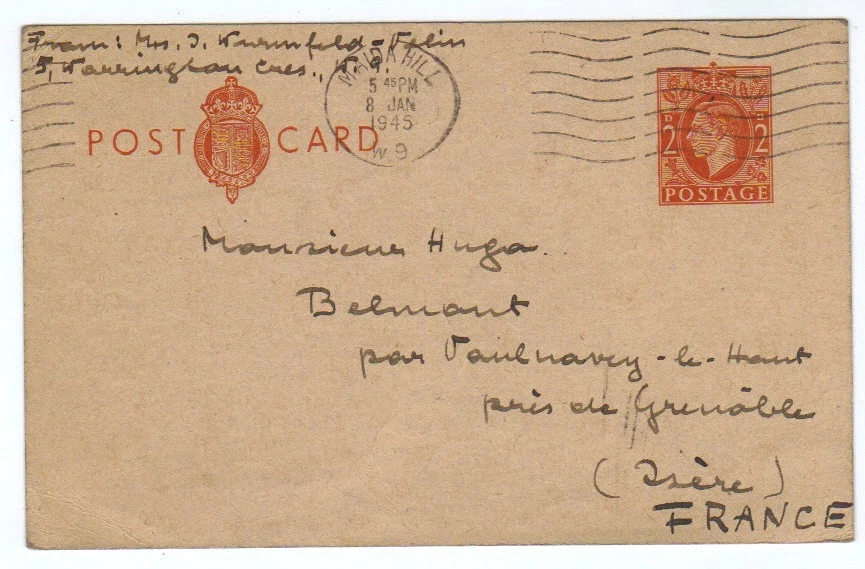 From: Mrs. I. Kurmfeld-Velin
5, Warrington Cres., W. 9.
MAIDA HILL
5 45 PM
8 JAN
1945
W.9
POST CARD
D 2 D 2
POSTAGE
Monsieur Hugo.
Belmont
par Vaulnavey-le-Haut
près de Grenôble
(Isère)
FRANCE